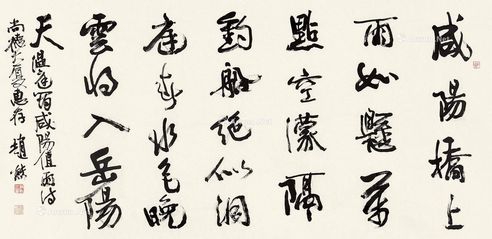 咸陽橋上
雨如懸萬
點空濛隔
釣船絕似洞
庭春水色晚
雲將入岳陽
天 溫庭筠咸陽值雨詩
尚德大廈惠存 趙熊